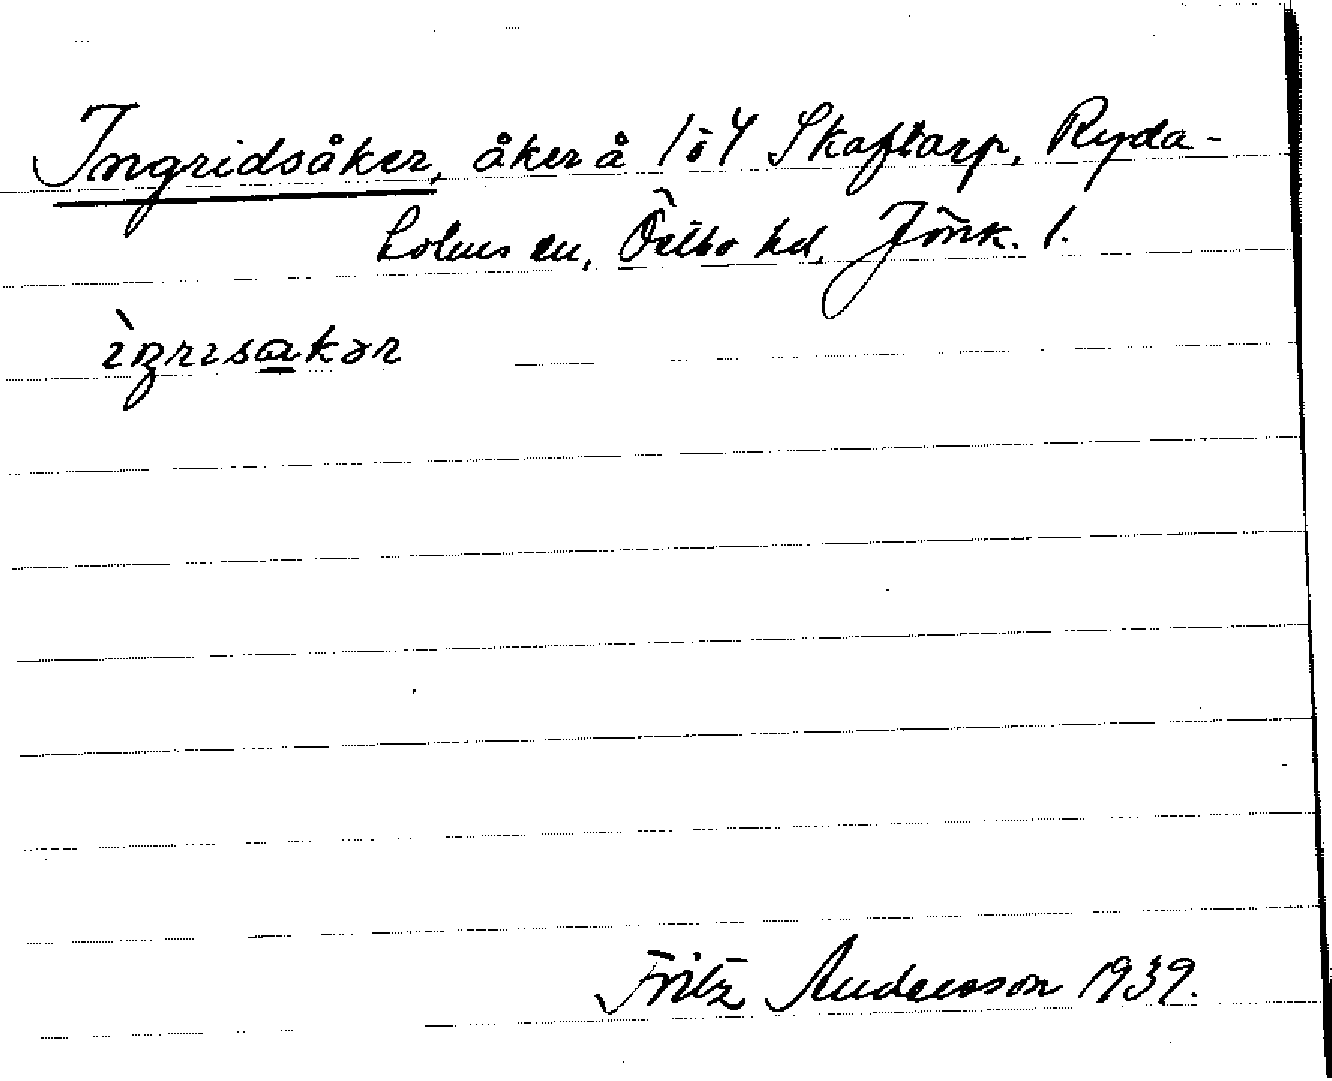 Ingridsåker, åker å 1 ö 4 Skaftarp, Ryda-
holms sn, Östbo hd, Jönk. l.
ìŋrɪsakər
Fritz Andersson 1939.